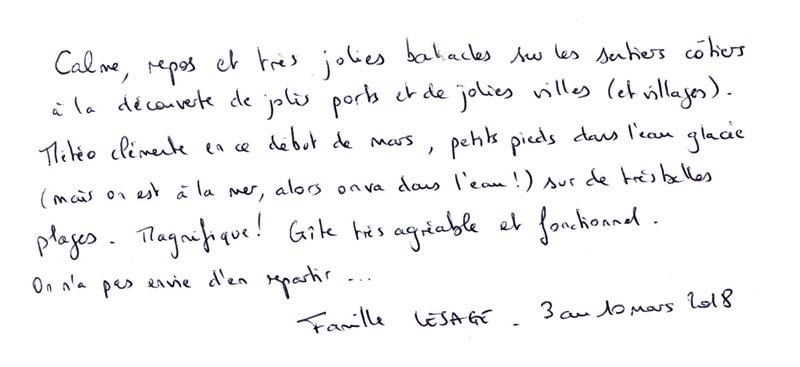 Calme, repos et très jolies balades sur les sentiers côtiers
à la découverte de jolis ports et de jolies villes (et villages).
Météo clémente en ce début de mars, petits pieds dans l'eau glacée
(mais on est à la mer, alors on va dans l'eau!) sur de très belles
plages. Magnifique! Gîte très agréable et fonctionnel.
On n'a pas envie d'en repartir...
Famille LESAGE - 3 au 10 mars 2018